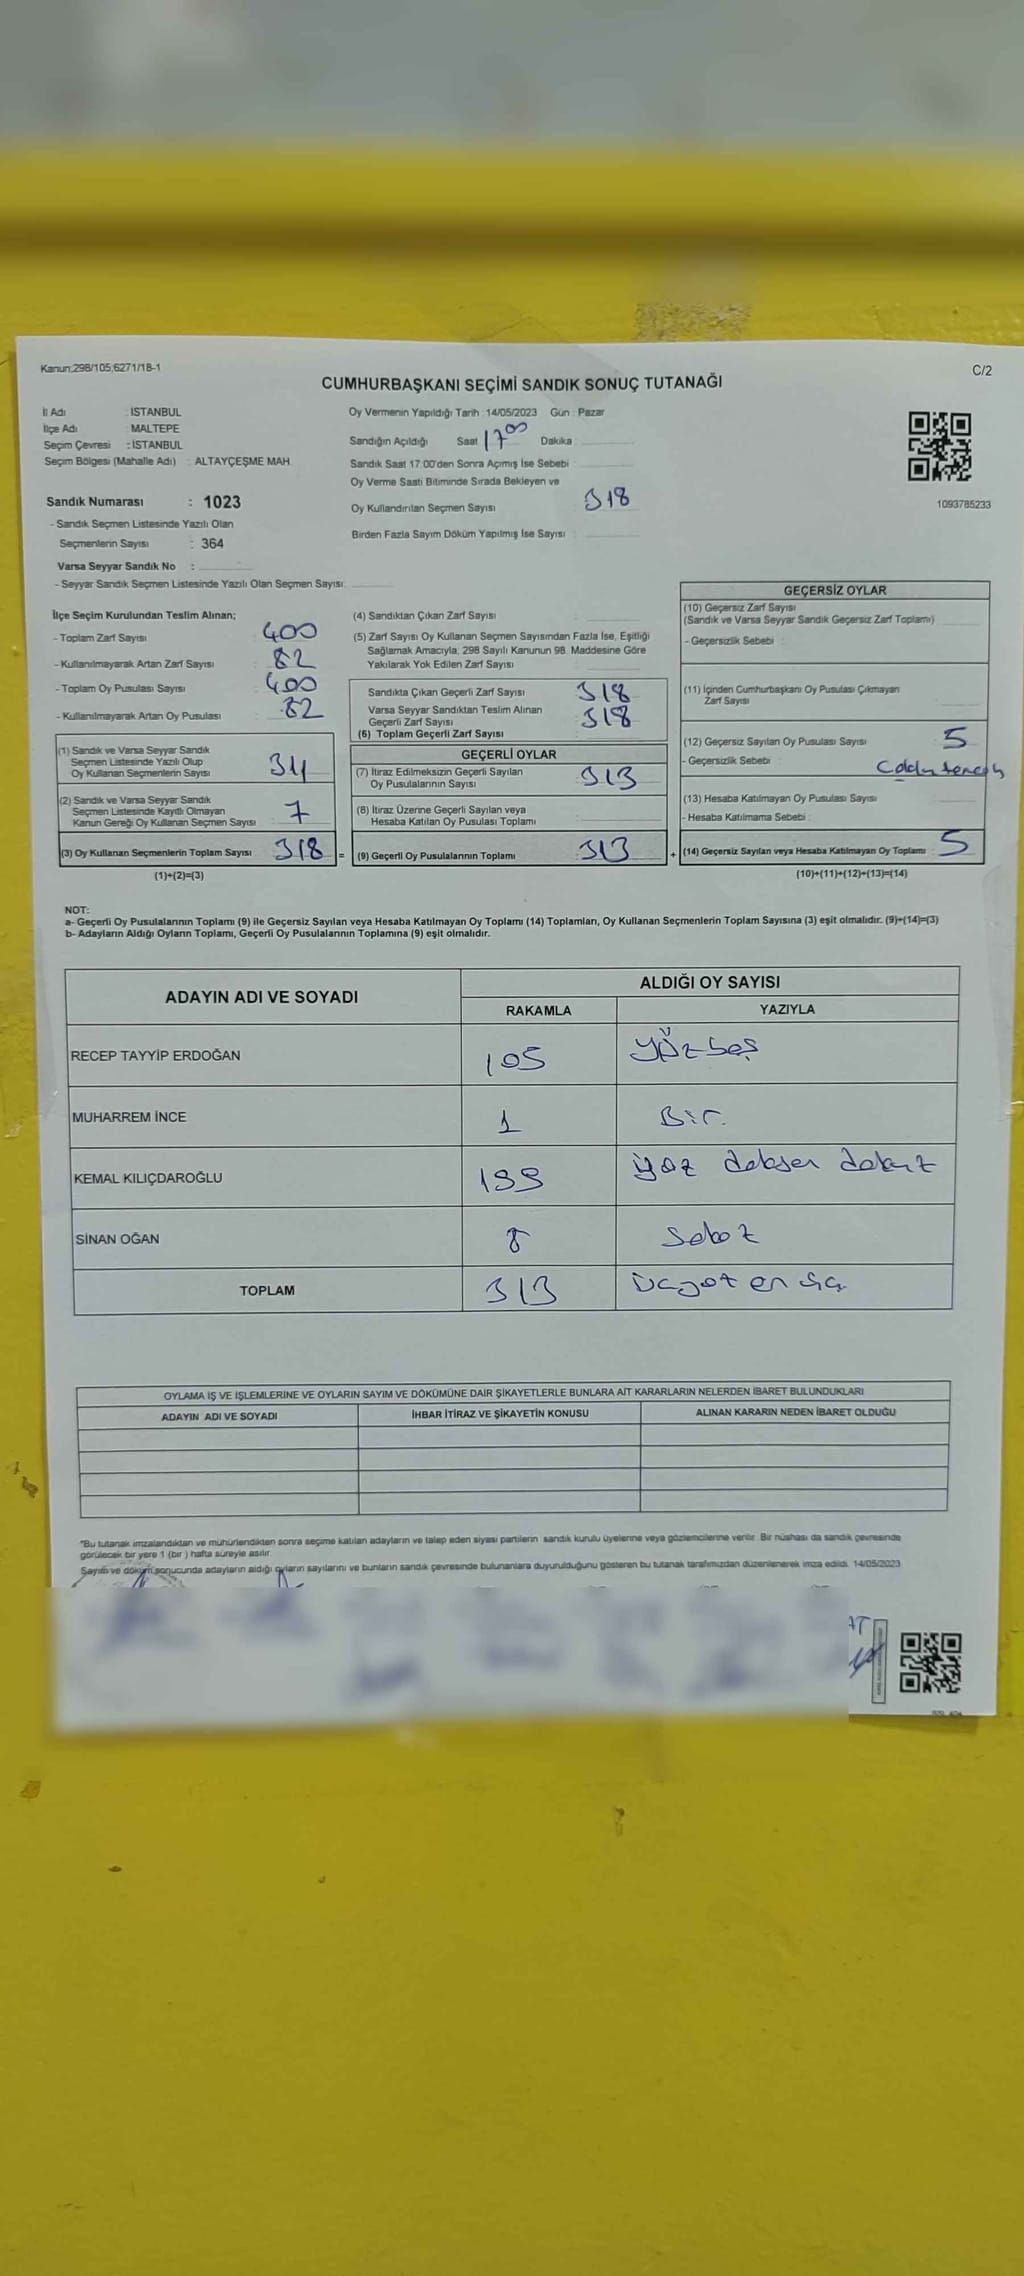 Kanun;298/105;6271/18-1
C/2
CUMHURBAŞKANI SEÇİMİ SANDIK SONUÇ TUTANAĞI
İl Adı : İSTANBUL
İlçe Adı : MALTEPE
Seçim Çevresi : İSTANBUL
Seçim Bölgesi (Mahalle Adı) : ALTAYÇEŞME MAH.
Oy Vermenin Yapıldığı Tarih :14/05/2023 Gün : Pazar
Sandığın Açıldığı Saat 17 00 Dakika :
Sandık Saat 17:00'den Sonra Açımış İse Sebebi :
Oy Verme Saati Bitiminde Sırada Bekleyen ve
Oy Kullandırılan Seçmen Sayısı : 318
Birden Fazla Sayım Döküm Yapılmış İse Sayısı :
1093785233
Sandık Numarası : 1023
- Sandık Seçmen Listesinde Yazılı Olan
Seçmenlerin Sayısı : 364
Varsa Seyyar Sandık No :
- Seyyar Sandık Seçmen Listesinde Yazılı Olan Seçmen Sayısı:
İlçe Seçim Kurulundan Teslim Alınan;
- Toplam Zarf Sayısı : 400
- Kullanılmayarak Artan Zarf Sayısı : 82
- Toplam Oy Pusulası Sayısı : 400
- Kullanılmayarak Artan Oy Pusulası : 82
(1) Sandık ve Varsa Seyyar Sandık
Seçmen Listesinde Yazılı Olup
Oy Kullanan Seçmenlerin Sayısı : 311
(2) Sandık ve Varsa Seyyar Sandık
Seçmen Listesinde Kayıtlı Olmayan
Kanun Gereği Oy Kullanan Seçmen Sayısı : 7
(3) Oy Kullanan Seçmenlerin Toplam Sayısı : 318
(1)+(2)=(3)
(4) Sandıktan Çıkan Zarf Sayısı :
(5) Zarf Sayısı Oy Kullanan Seçmen Sayısından Fazla İse, Eşitliği
Sağlamak Amacıyla; 298 Sayılı Kanunun 98. Maddesine Göre
Yakılarak Yok Edilen Zarf Sayısı :
Sandıkta Çıkan Geçerli Zarf Sayısı : 318
Varsa Seyyar Sandıktan Teslim Alınan
Geçerli Zarf Sayısı : 318
(6) Toplam Geçerli Zarf Sayısı :
GEÇERLİ OYLAR
(7) İtiraz Edilmeksizin Geçerli Sayılan
Oy Pusulalarının Sayısı : 313
(8) İtiraz Üzerine Geçerli Sayılan veya
Hesaba Katılan Oy Pusulası Toplamı :
= (9) Geçerli Oy Pusulalarının Toplamı : 313
GEÇERSİZ OYLAR
(10) Geçersiz Zarf Sayısı
(Sandık ve Varsa Seyyar Sandık Geçersiz Zarf Toplamı) :
- Geçersizlik Sebebi :
(11) İçinden Cumhurbaşkanı Oy Pusulası Çıkmayan
Zarf Sayısı :
(12) Geçersiz Sayılan Oy Pusulası Sayısı : 5
- Geçersizlik Sebebi :
(13) Hesaba Katılmayan Oy Pusulası Sayısı :
- Hesaba Katılmama Sebebi :
+ (14) Geçersiz Sayılan veya Hesaba Katılmayan Oy Toplamı : 5
(10)+(11)+(12)+(13)=(14)
NOT:
a- Geçerli Oy Pusulalarının Toplamı (9) ile Geçersiz Sayılan veya Hesaba Katılmayan Oy Toplamı (14) Toplamları, Oy Kullanan Seçmenlerin Toplam Sayısına (3) eşit olmalıdır. (9)+(14)=(3)
b- Adayların Aldığı Oyların Toplamı, Geçerli Oy Pusulalarının Toplamına (9) eşit olmalıdır.
ADAYIN ADI VE SOYADI
ALDIĞI OY SAYISI
RAKAMLA YAZIYLA
RECEP TAYYİP ERDOĞAN 105 Yüzbeş
MUHARREM İNCE 1 Bir.
KEMAL KILIÇDAROĞLU 199 yüz doksan dokuz
SİNAN OĞAN 8 Sekiz
TOPLAM 313 Üçyüz on üç
OYLAMA İŞ VE İŞLEMLERİNE VE OYLARIN SAYIM VE DÖKÜMÜNE DAİR ŞİKAYETLERLE BUNLARA AİT KARARLARIN NELERDEN İBARET BULUNDUKLARI
ADAYIN ADI VE SOYADI İHBAR İTİRAZ VE ŞİKAYETİN KONUSU ALINAN KARARIN NEDEN İBARET OLDUĞU
*Bu tutanak imzalandıktan ve mühürlendikten sonra seçime katılan adayların ve talep eden siyasi partilerin sandık kurulu üyelerine veya gözlemcilerine verilir. Bir nüshası da sandık çevresinde
görülecek bir yere 1 (bir ) hafta süreyle asılır.
Sayım ve döküm sonucunda adayların aldığı oyların sayılarını ve bunların sandık çevresinde bulunanlara duyurulduğunu gösteren bu tutanak tarafımızdan düzenlenerek imza edildi. 14/05/2023